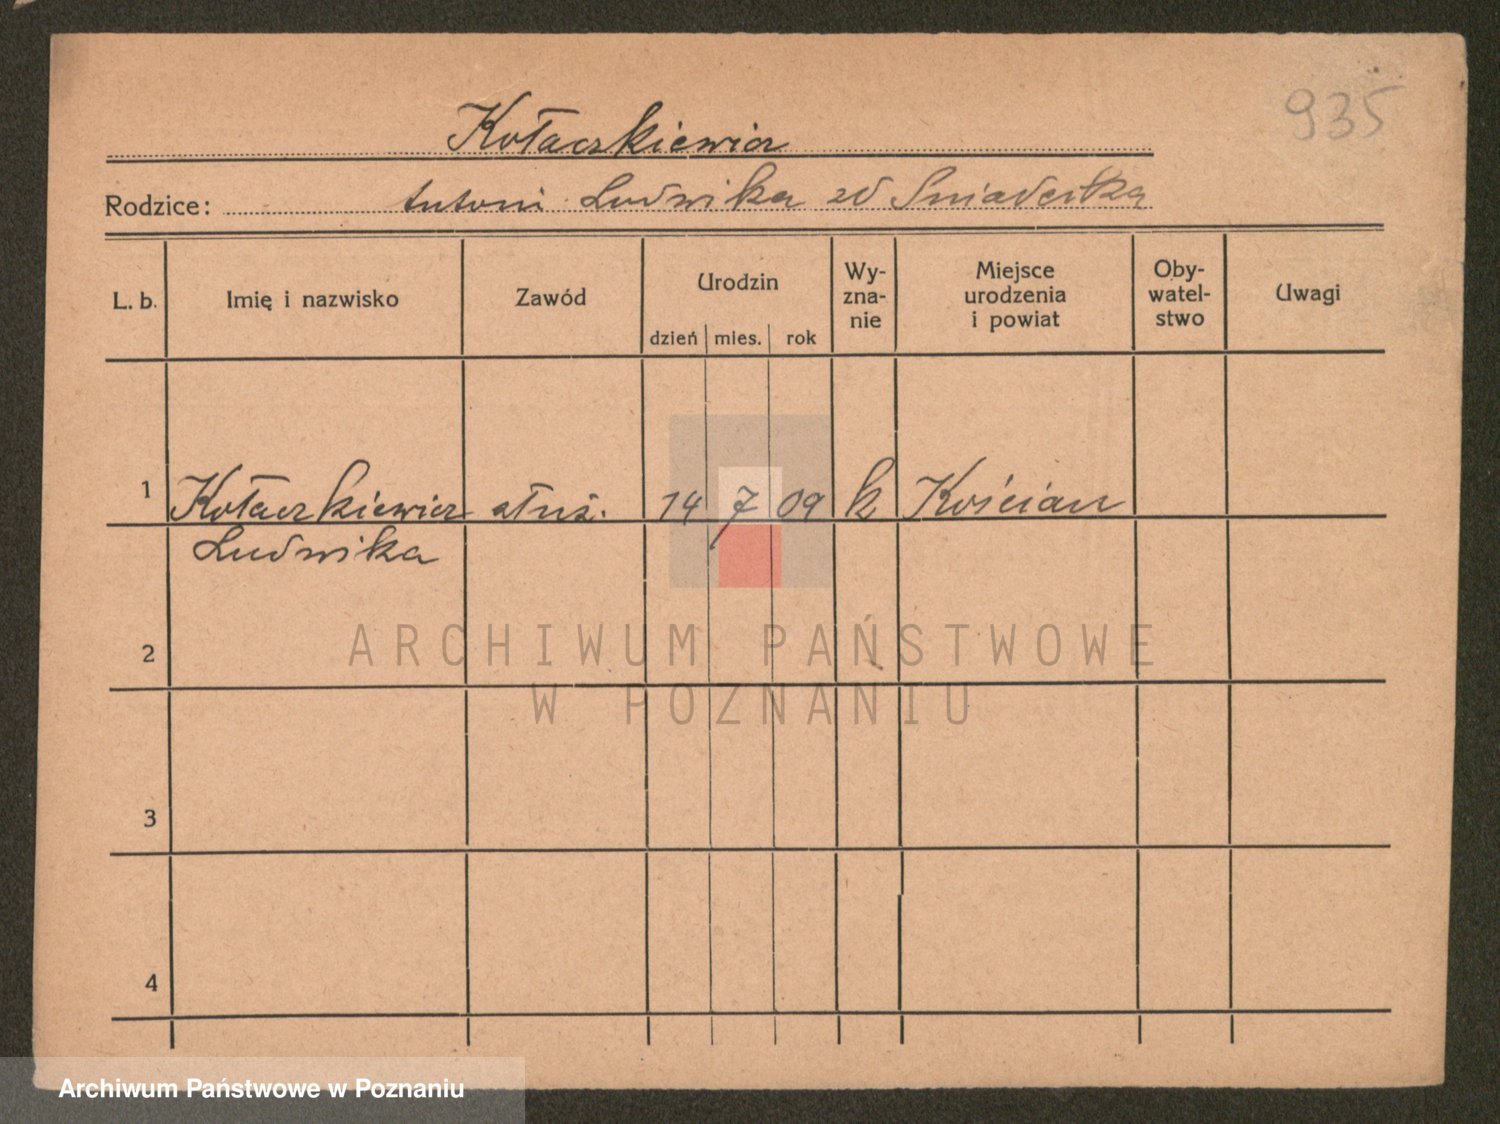 935
Kołaczkiewicz
Rodzice: Antoni Ludwika zd
L. b. Imię i nazwisko Zawód Urodzin dzień mies. rok Wy-zna-nie Miejsce urodzenia i powiat Oby-watel-stwo Uwagi
1 Kołaczkiewicz służ. 14 7 09 k Kościan
Ludwika
2
3
4
ARCHIWUM PAŃSTWOWE
W POZNANIU
Archiwum Państwowe w Poznaniu